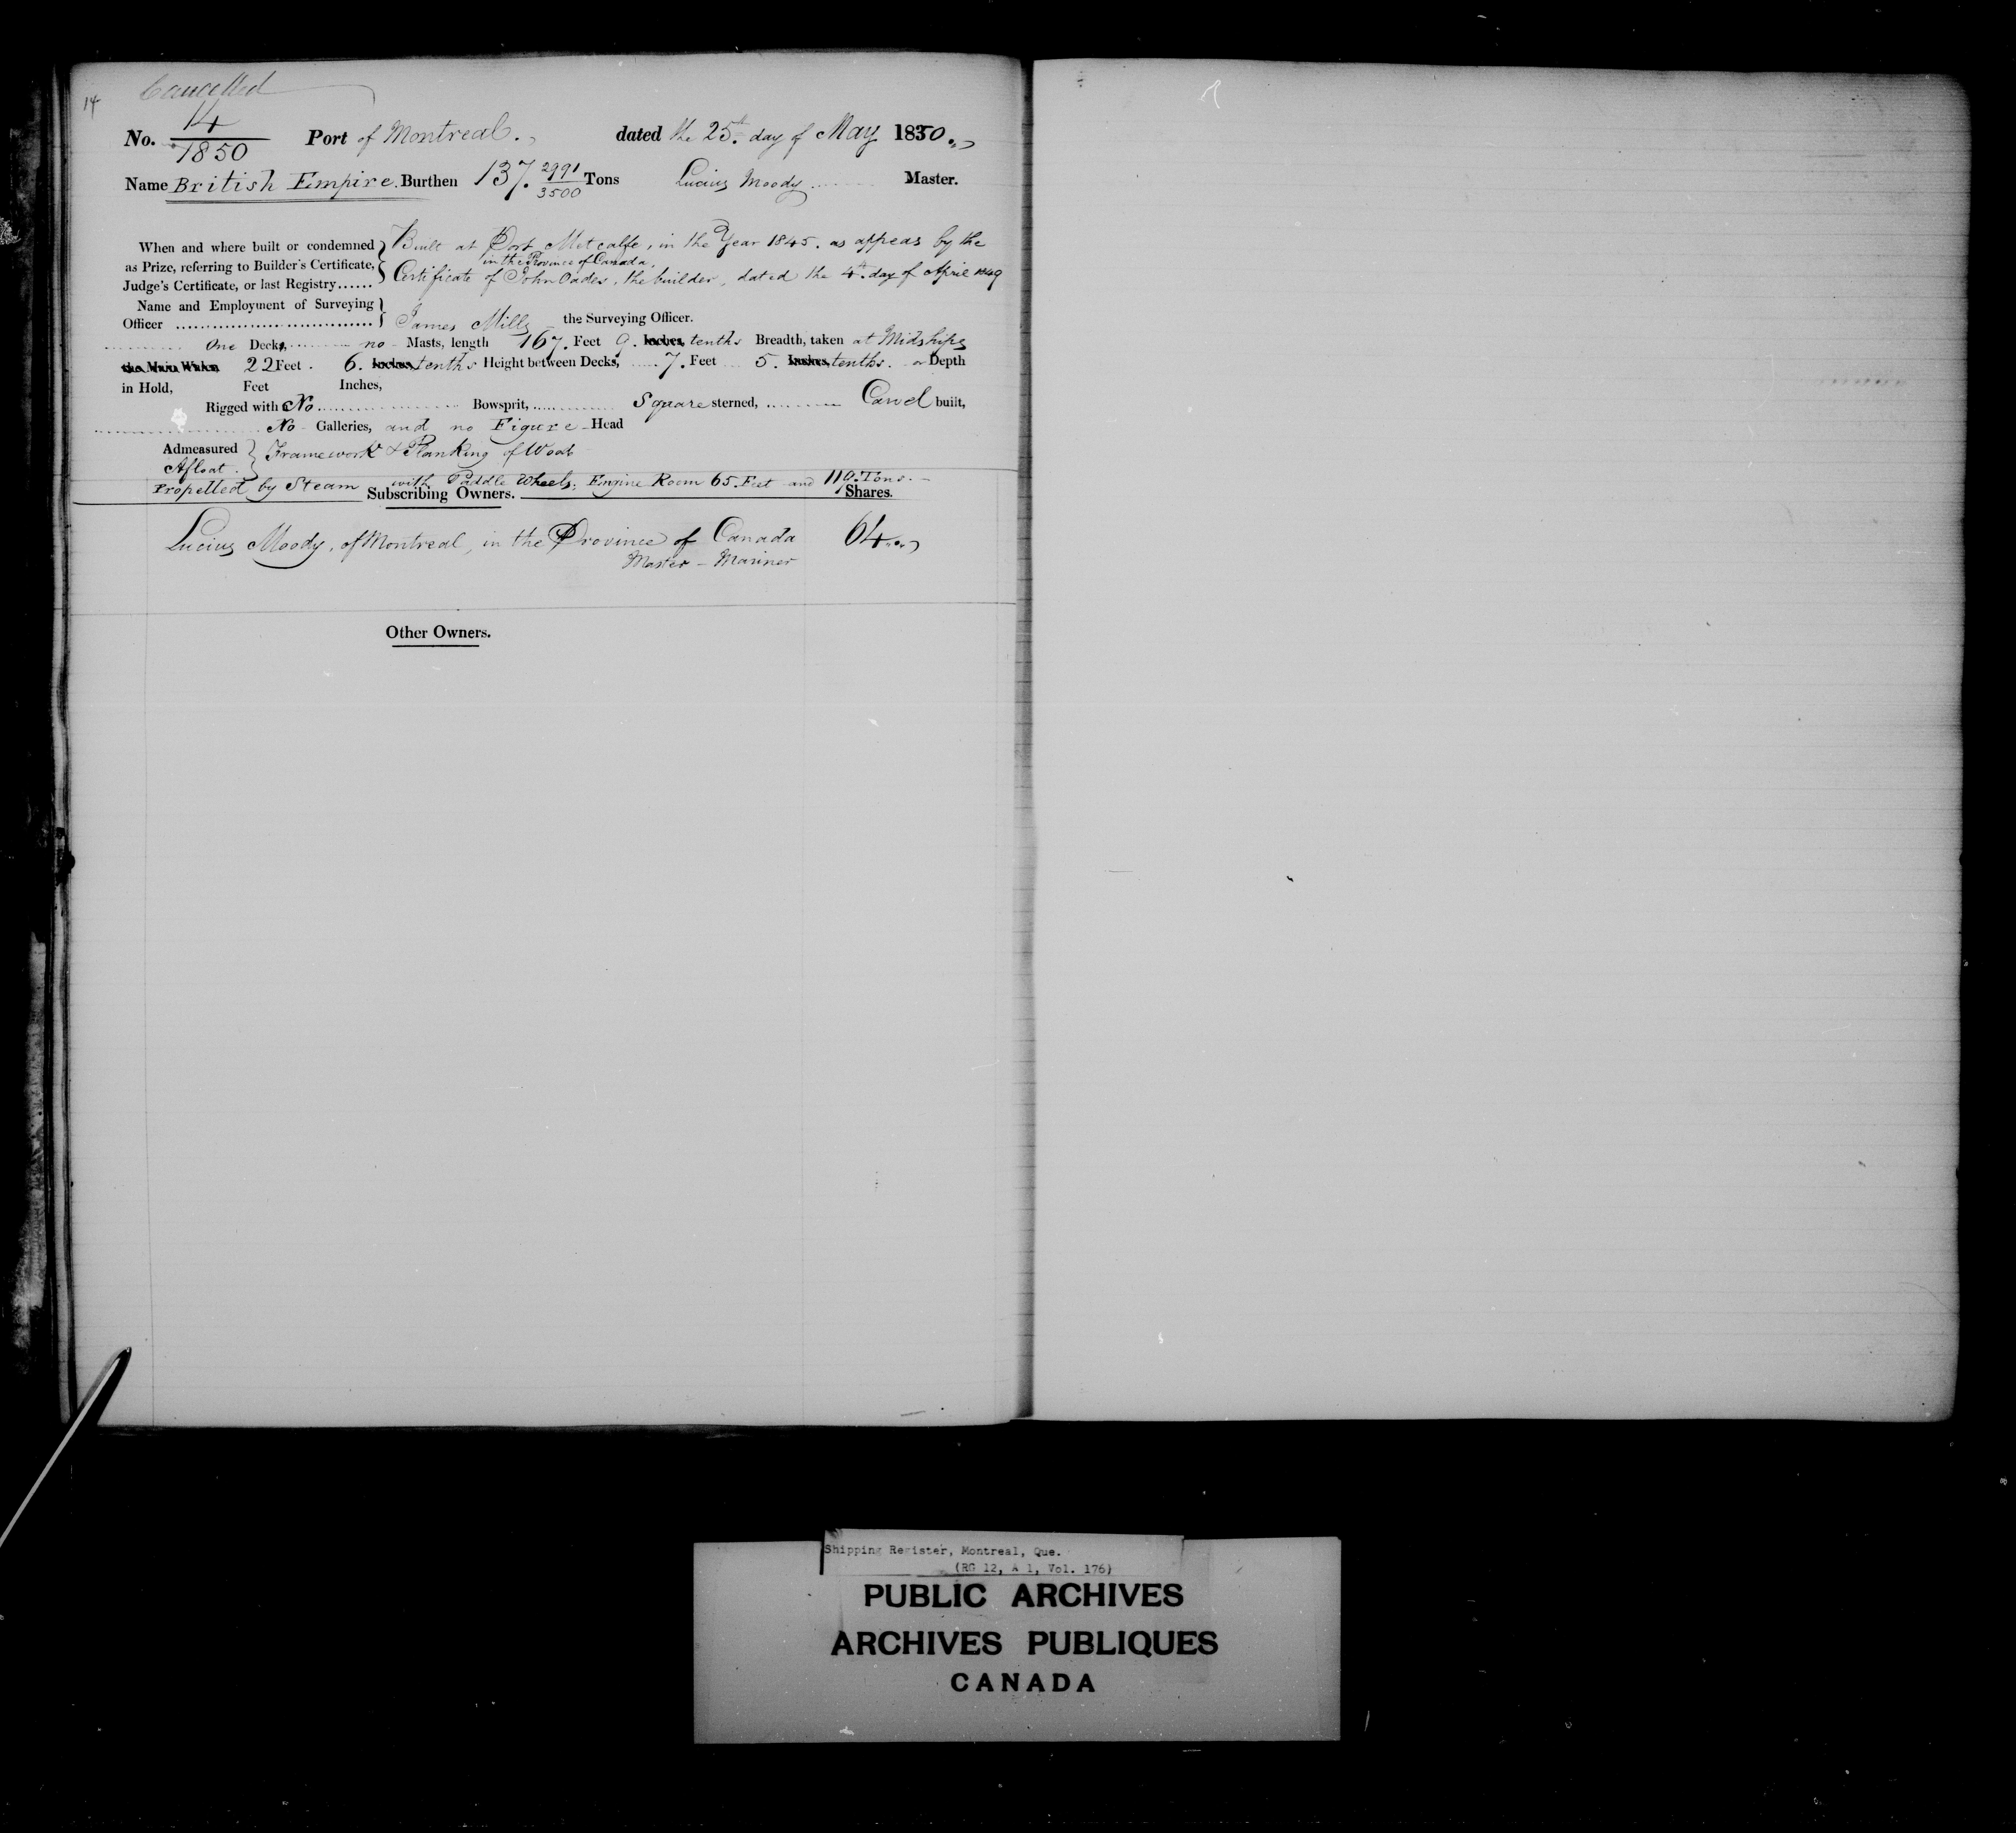 Cancelled
14
No. 14/1850 Port of Montreal. dated the 25th day of May 1850.
Name British Empire. Burthen 137. 2991/3500 Tons Lucius Moody Master.
When and where built or condemned as Prize, referring to Builder's Certificate, Judge's Certificate, or last Registry......
Built at Port Metcalfe, in the Year 1845. as appears by the
in the Province of Canada,
Certificate of John Oades, the builder, dated the 4th day of April 1849
Name and Employment of Surveying
Officer James Mills the Surveying Officer.
One Decks, no Masts, length 167. Feet 9. Inches, tenths Breadth, taken at Midships
the Main Wales 22 Feet. 6. Inches, tenths Height between Decks, 7. Feet 5. Inches, tenths. or Depth
in Hold, Feet Inches,
Rigged with No Bowsprit, Square sterned, Carvel built,
No Galleries, and no Figure Head
Admeasured Afloat. Framework & Planking of Wood
Propelled by Steam with Paddle Wheels; Engine Room 65. Feet and 110. Tons.
Subscribing Owners. Shares.
Lucius Moody, of Montreal, in the Province of Canada 64
Master - Mariner
Other Owners.
Shipping Register, Montreal, Que.
(RG 12, A 1, Vol. 176)
PUBLIC ARCHIVES
ARCHIVES PUBLIQUES
CANADA